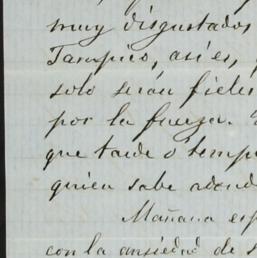 muy disgustados
Tampico, así es,
solo serán fieles
por la fuerza.
que tarde o temp
quien sabe adond
Mañana esp
con la ansiedad de s